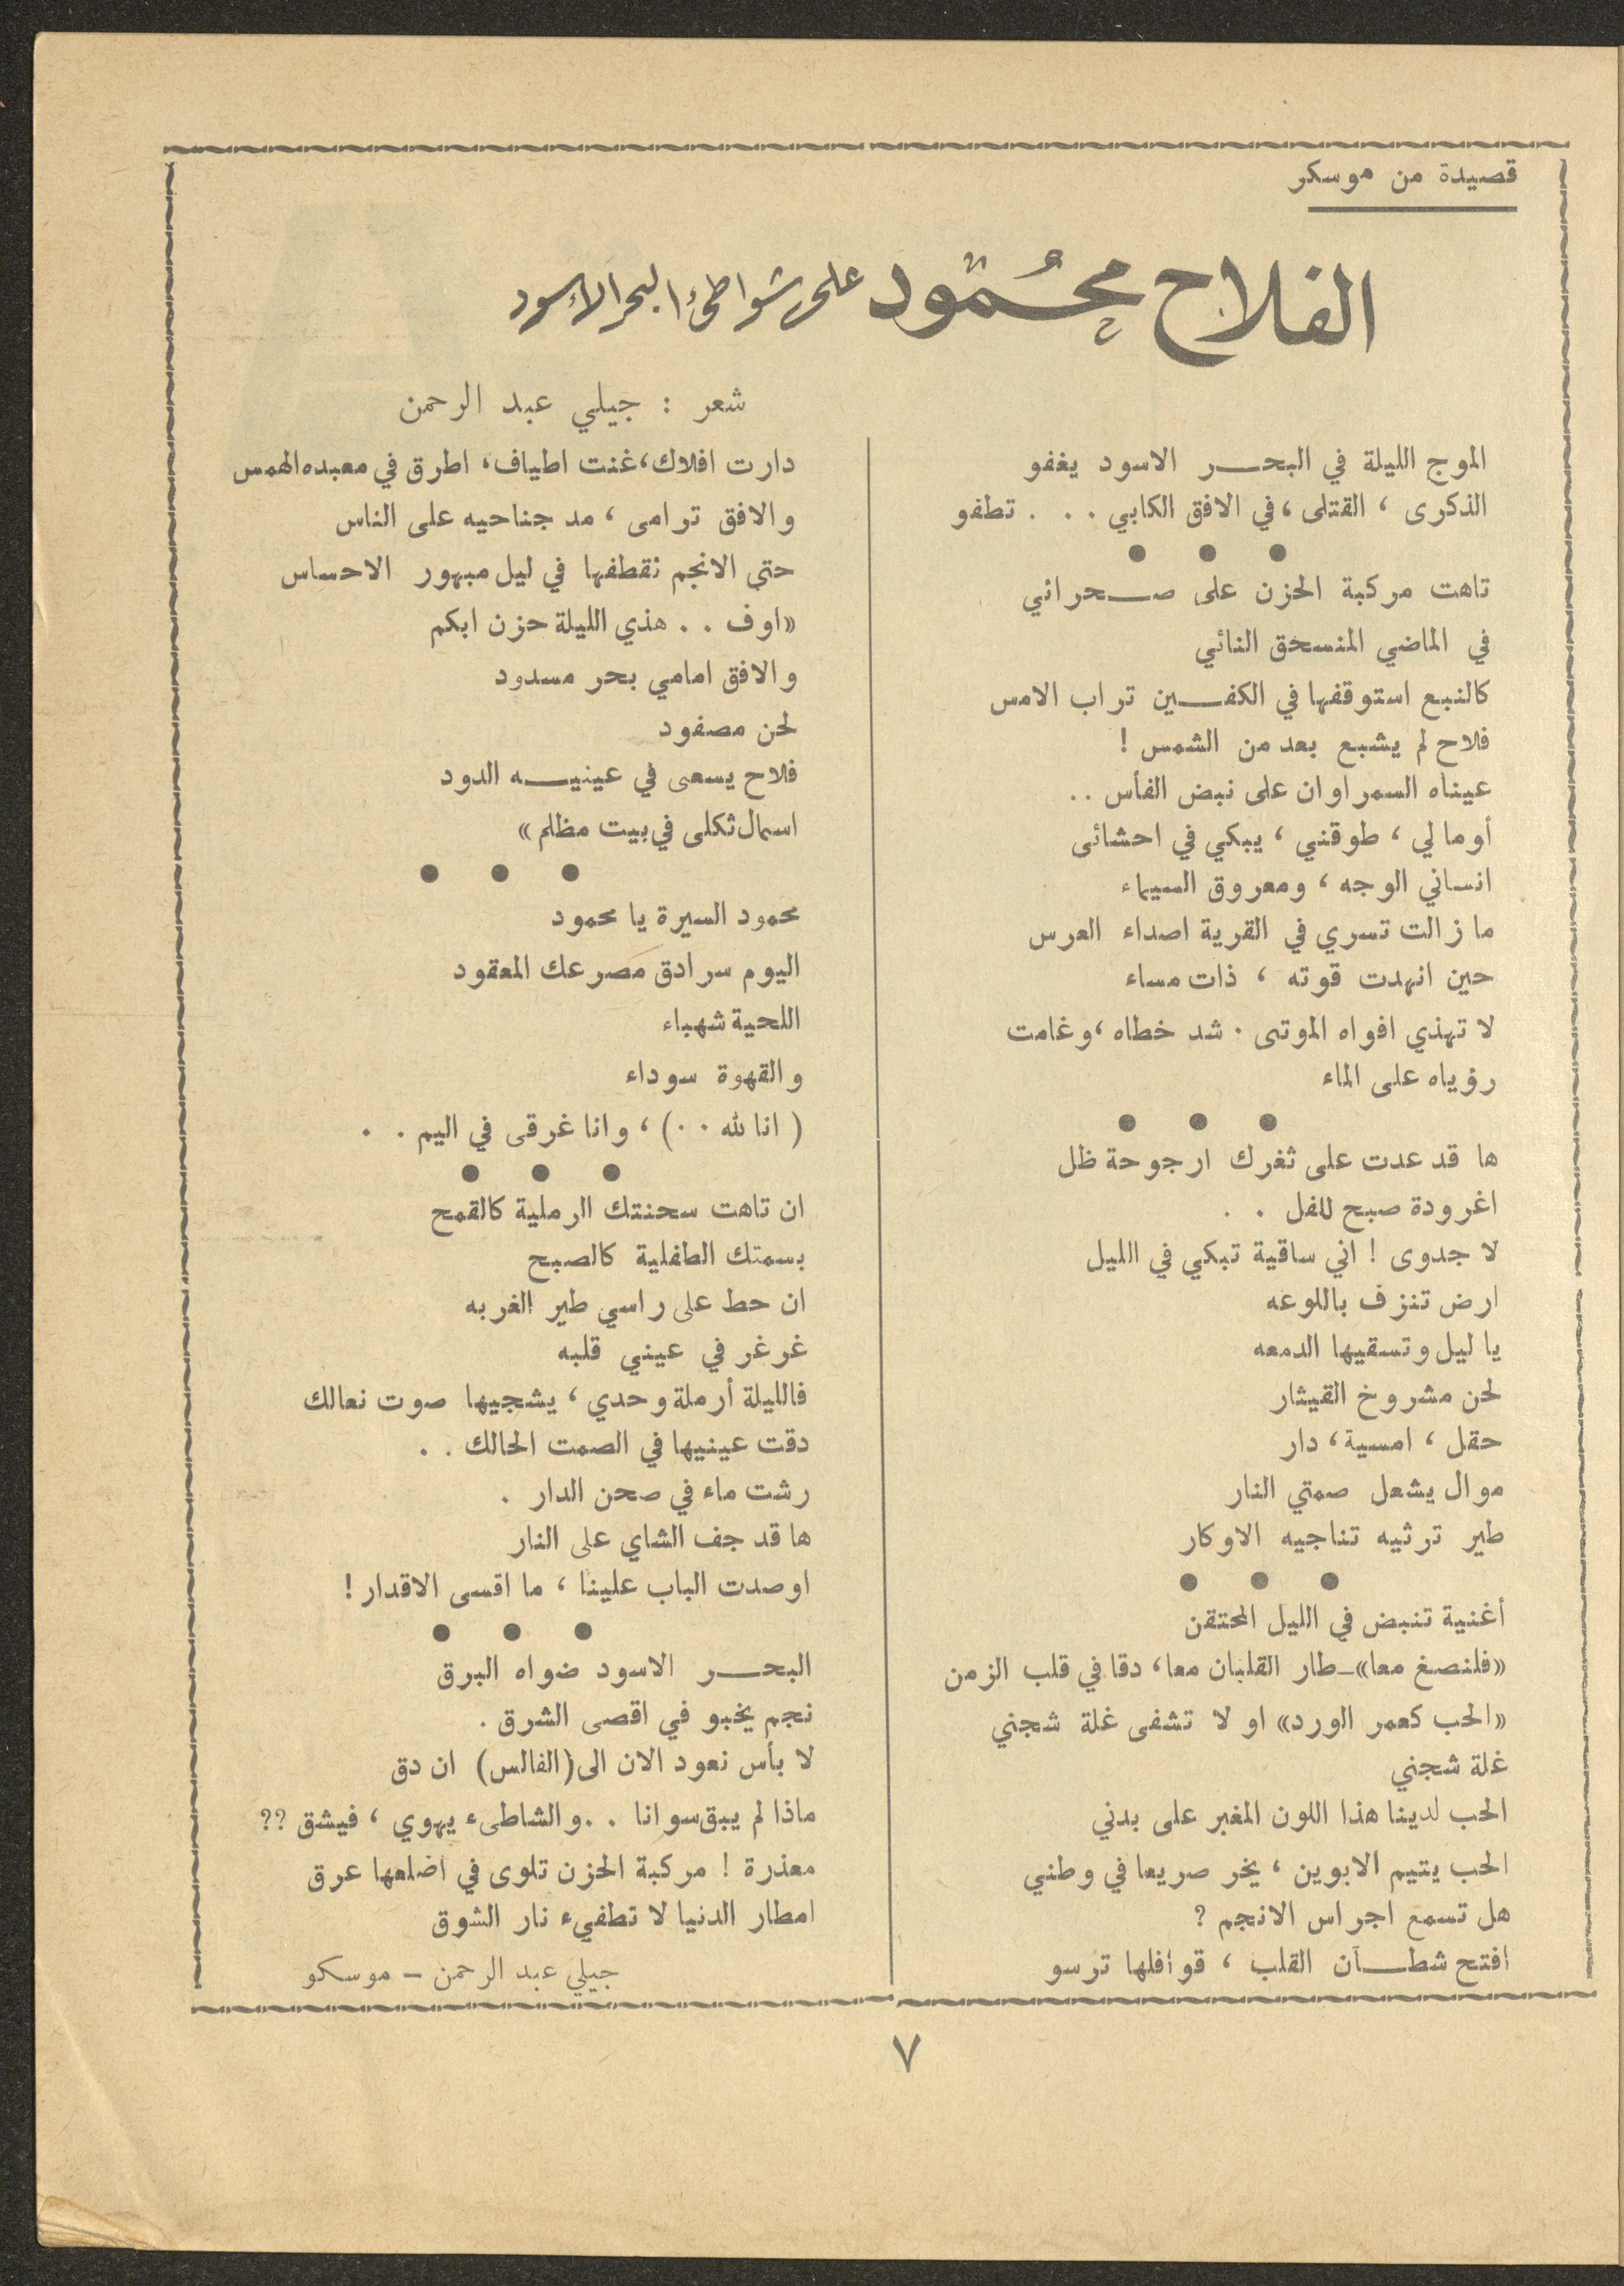 قصيدة من موسكر
الفلاح محمود على شواطئ البحر الأسود
شعر : جيلي عبد الرحمن
الموج الليلة في البحر الاسود يغفو
الذكرى ، القتلى ، في الافق الكابي . . . تطفو
● ● ●
تاهت مركبة الحزن على صحرائي
في الماضي المنسحق النائي
كالنبع استوقفها في الكفين تراب الامس
فلاح لم يشبع بعد من الشمس !
عيناه السمراوان على نبض الفأس ..
أوما لي ، طوقني ، يبكي في احشائى
انساني الوجه ، ومعروق السيماء
ما زالت تسري في القرية اصداء العرس
حين انهدت قوته ، ذات مساء
لا تهذي افواه الموتى . شد خطاه ، وغامت
رؤياه على الماء
● ● ●
ها قد عدت على ثغرك ارجوحة ظل
اغرودة صبح للفل . .
لا جدوى ! اني ساقية تبكي في الليل
ارض تنزف باللوعه
يا ليل وتسقيها الدمعه
لحن مشروخ القيثار
حقل ، امسية ، دار
موال يشعل صمتي النار
طير ترثيه تناجيه الاوكار
● ● ●
أغنية تنبض في الليل المحتقن
«فلنصغ معا» – طار القلبان معا ، دقا في قلب الزمن
«الحب كعمر الورد» او لا تشفى غلة شجني
غلة شجني
الحب لدينا هذا اللون المغبر على بدني
الحب يتيم الابوين ، يخر صريعا في وطني
هل تسمع اجراس الانجم ؟
افتح شطآن القلب ، قوافلها ترسو
دارت افلاك ، غنت اطياف ، اطرق في معبده الهمس
والافق ترامى ، مد جناحيه على الناس
حتى الانجم نقطفها في ليل مبهور الاحساس
«اوف . . هذي الليلة حزن ابكم
والافق امامي بحر مسدود
لحن مصفود
فلاح يسعى في عينيه الدود
اسمال ثكلى في بيت مظلم »
● ● ●
محمود السيرة يا محمود
اليوم سرادق مصرعك المعقود
اللحية شهباء
والقهوة سوداء
( انا لله . . ) ، وانا غرقى في اليم . .
● ● ●
ان تاهت سحنتك الرملية كالقمح
بسمتك الطفلية كالصبح
ان حط على راسي طير الغربه
غرغر في عيني قلبه
فالليلة أرملة وحدي ، يشجيها صوت نعالك
دقت عينيها في الصمت الحالك . .
رشت ماء في صحن الدار .
ها قد جف الشاي على النار
اوصدت الباب علينا ، ما اقسى الاقدار !
● ● ●
البحر الاسود ضواه البرق
نجم يخبو في اقصى الشرق .
لا بأس نعود الان الى (الفالس) ان دق
ماذا لم يبق سوانا . . والشاطىء يهوي ، فيشق ؟؟
معذرة ! مركبة الحزن تلوى في اضلعها عرق
امطار الدنيا لا تطفيء نار الشوق
جيلي عبد الرحمن – موسكو
٧